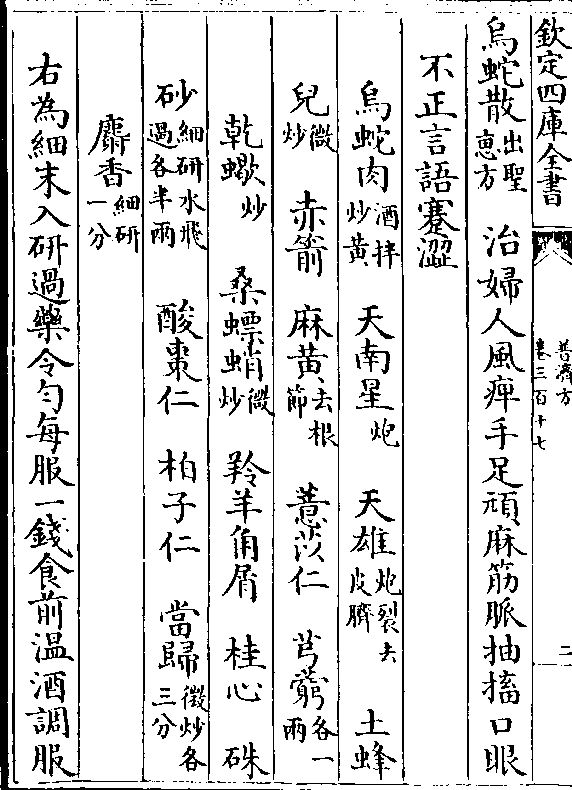 欽定四庫全書
普濟方
卷三百十七
二
烏蛇散出聖惠方 治婦人風痺手足頑麻筋脈抽搐口眼
不正言語蹇澀
烏蛇肉酒拌炒黄 天南星炮 天雄炮裂去皮臍 土蜂
兒微炒 赤箭 麻黄去根節 薏苡仁 芎藭各一兩
乾蠍炒 桑螵蛸微炒 羚羊角屑 桂心 硃
砂細研水飛過各半兩 酸棗仁 柏子仁 當歸微炒各三分
麝香細研一分
右為細末入研過藥令勻每服一錢食前温酒調服